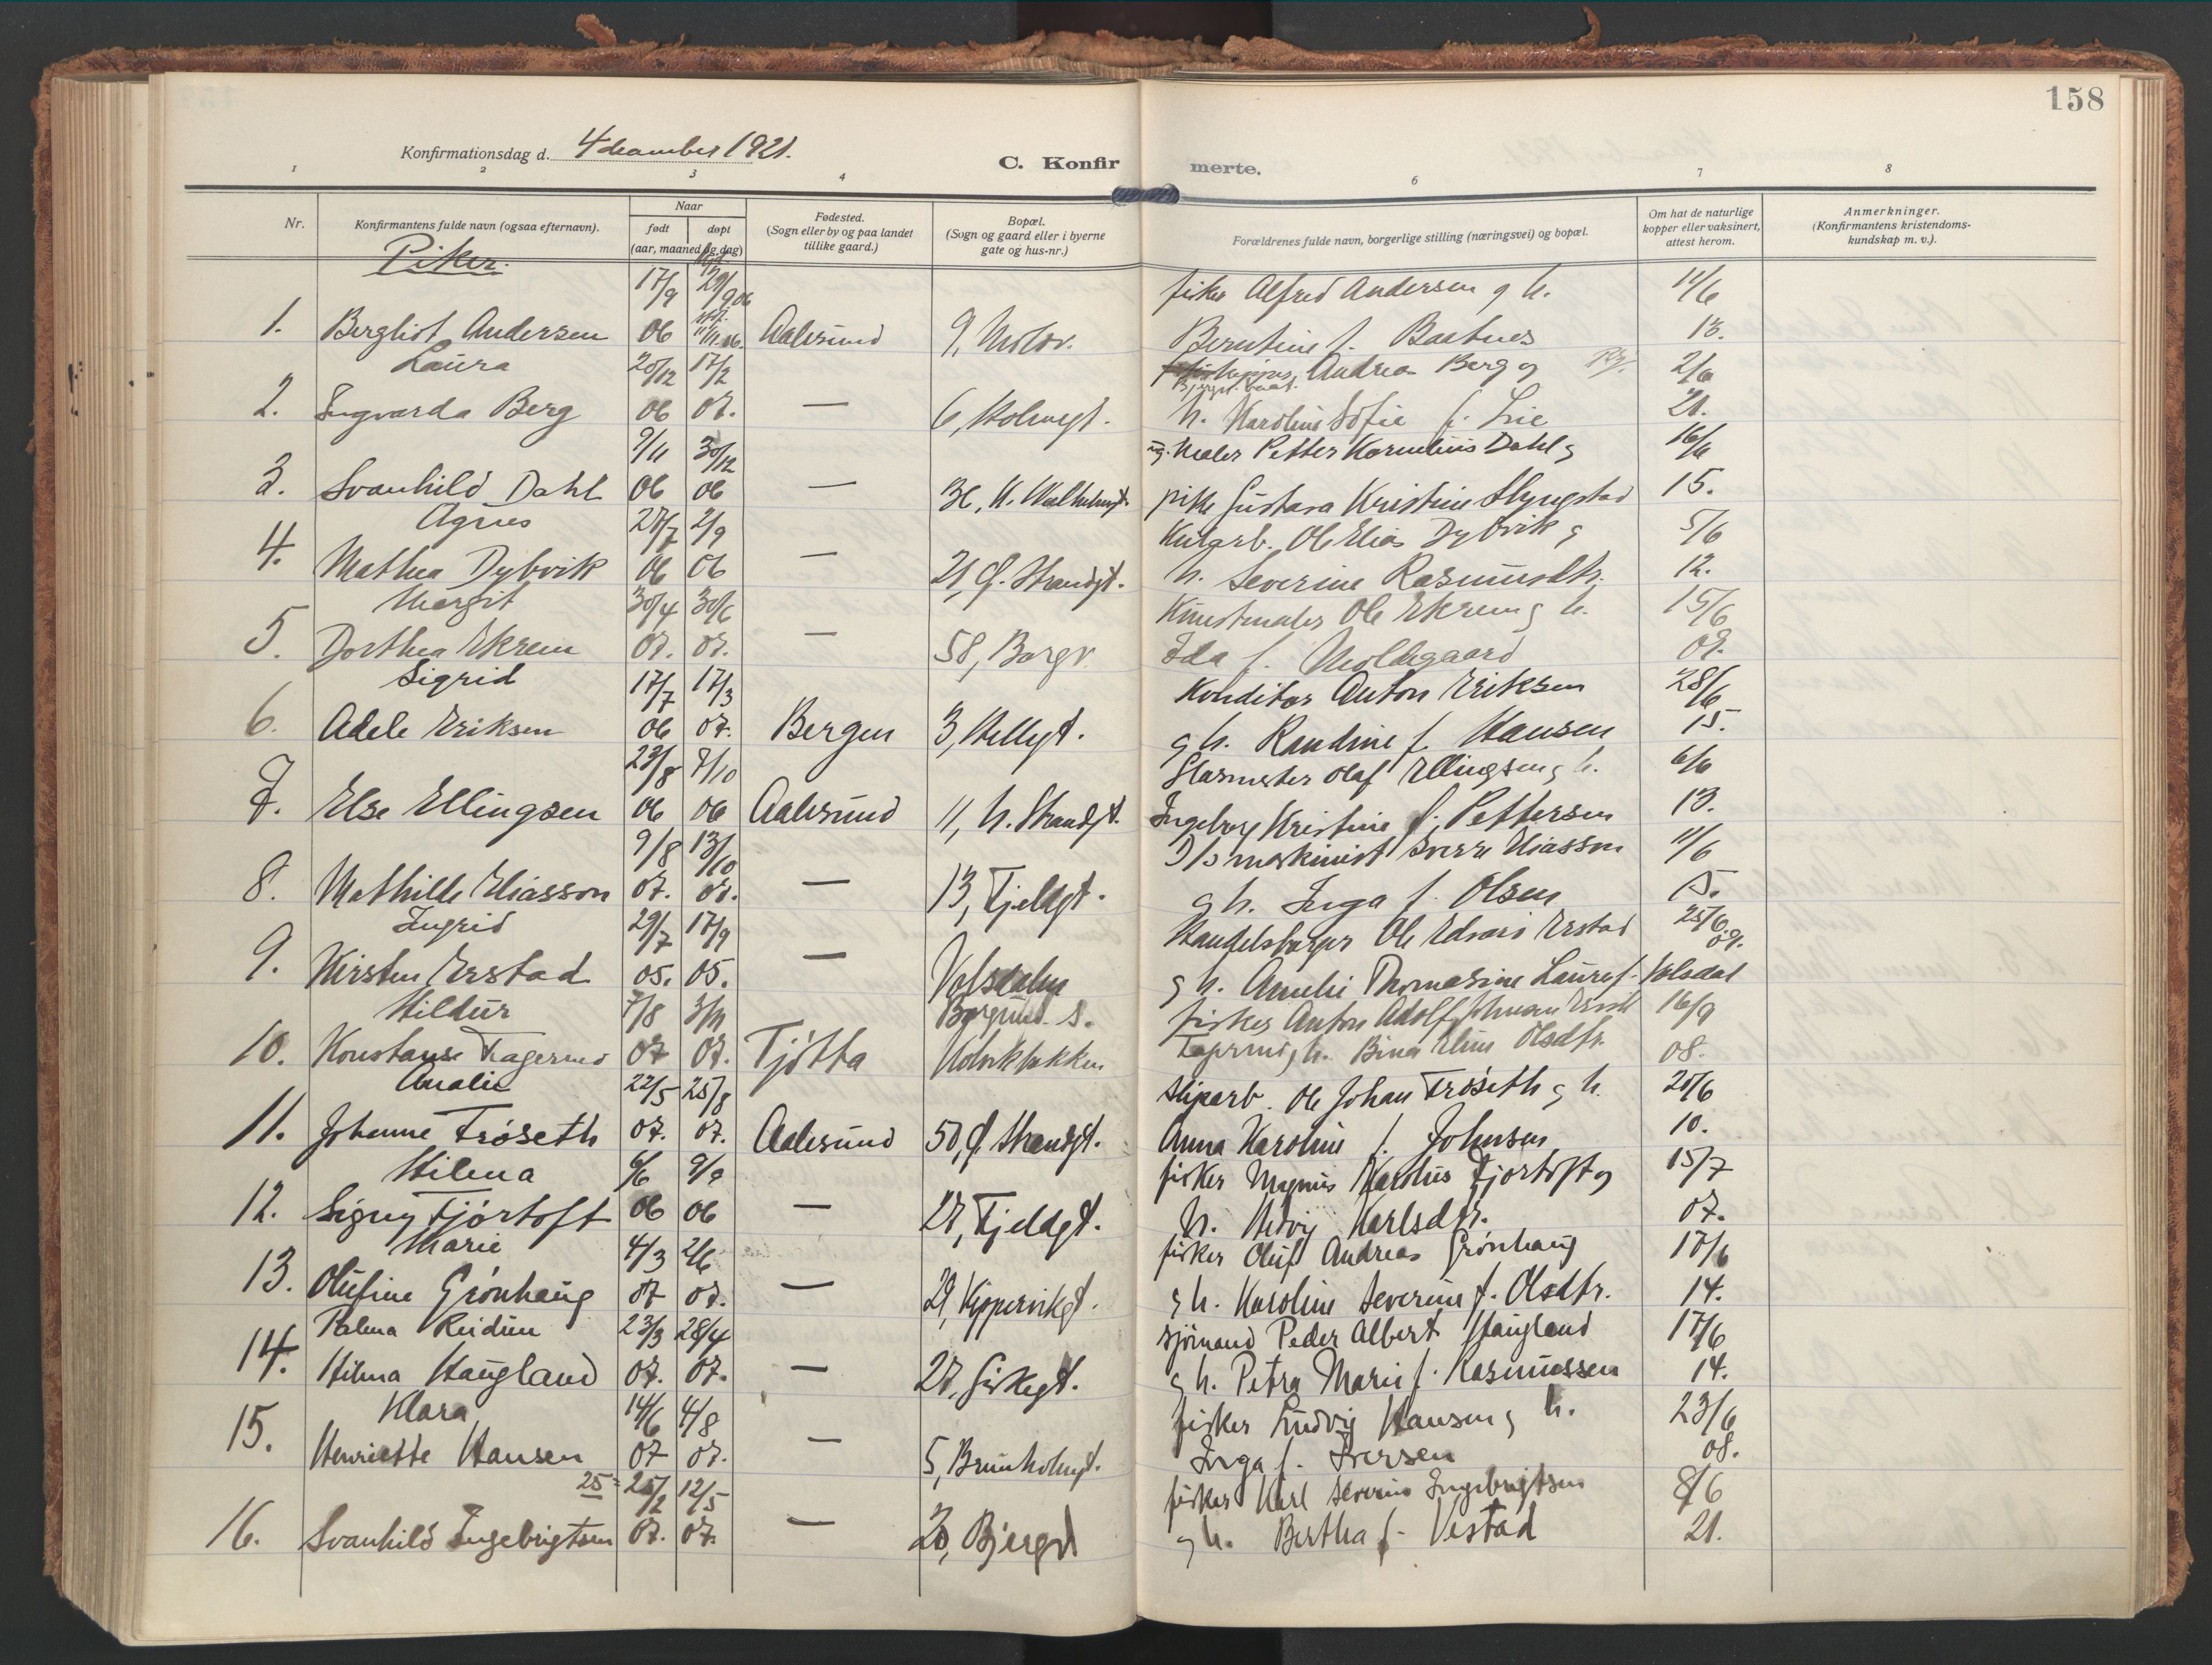 158
Konfirmationsdag d. 4 december 1921.
C. Konfir merte.
1 2 3 4 6 7 8
Nr.
Konfirmantens fulde navn (ogsaa efternavn).
Naar
født døpt
(aar, maaned og dag)
Fødested.
(Sogn eller by og paa landet
tillike gaard.)
Bopæl.
(Sogn og gaard eller i byerne
gate og hus-nr.)
Forældrenes fulde navn, borgerlige stilling (næringsvei) og bopæl.
Om hat de naturlige
kopper eller vaksinert,
attest herom.
Anmerkninger.
(Konfirmantens kristendoms-
kundskap m. v.).
Piker.
17/9 29/9 06 fisker Alfred Andersen g h. 11/6
1. Bergliot Andersen 06 11/11.06. Aalesund 9, Molov. Berntine f. Baatnes 13.
Laura 20/12 17/2 Andreas Berg g 2/6
2. Ingvarda Berg 06 07. — 6, Holmegt. h. Karoline Sofie f. Lie 21.
9/11 30/12 ug. Maler Petter Kornelius Dahl g 16/6
3. Svanhild Dahl 06 06 — 36, K. pike Gustava Kristine Slyngstad 15.
Agnes 27/7 2/9 Ole Elias Dybvik g 5/6
4. Mathea Dybvik 06 06 — 21, Ø. Strandgt. h. Severine Rasmusdtr. 12.
Margit 30/4 30/6 Kunstmaler Ole Ekrem g h. 15/6
5. Dorthea Ekrem 07. 07. — 58, Borgv. Ida f. Moldegaard 09.
Sigrid 17/7 17/3 Konditor Anton Eriksen 28/6
6. Adele Eriksen 06 07. Bergen 3, Hellegt. g h. Randine f. Hansen 15.
23/8 7/10 Glasmester Olaf Ellingsen g h. 6/6
7. Else Ellingsen 06 06 Aalesund 11, N. Strandgt. Ingeborg Kristine f. Pettersen 13.
9/8 13/10 D/s maskinist Sverre Eliasson 11/6
8. Mathilde Eliasson 07. 07. — 13, Fjeldgt. g h. Inga f. Olsen 15.
Ingrid 29/7 17/9 Handelsborger Ole Edvard Erstad 25/6 09.
9. Kirsten Erstad 05. 05. — Volsdalen g h. Amelie Thomasine Laure f. Volsdal
Hildur 7/8 3/11 Borgund s. fisker Anton Adolf Johman 16/9
10. Konstanse Fagernes 07 07. Tjøtta h. Bina Eline Olsdtr. 08.
Amalie 22/5 25/8 Sliparb. Ole Johan Frøseth g h. 20/6
11. Johanne Frøseth 07. 07. Aalesund 50, Ø Strandgt. Anna Karoline f. Johnsen 10.
Hilma 6/6 9/9 fisker Magnus Karolus Fjørtoft g 15/7
12. Signy Fjørtoft 06 06 — 27, Fjeldgt. h. Hedvig Karlsdtr. 07.
Marie 4/3 2/6 fisker Oluf Andreas Grønhaug 17/6
13. Olufine Grønhaug 07 07. — 29, Kippervikgt. g h. Karoline Severine f. Olsdtr. 14.
Palma Reidun 23/3 28/4 sjømand Peder Albert Haugland 17/6
14. Hilma Haugland 07. 07. — 27, Giskegt. g h. Petra Marie f. Rasmussen 14.
Klara 14/6 4/8 fisker Ludvig Hansen g h. 23/6
15. Henriette Hansen 07 07. — 5, Brunholmgt. Inga f. Iversen 08.
25 = 25/2 12/5 fisker Karl Severin Ingebrigtsen 8/6
16. Svanhild Ingebrigtsen 07. 07. — 20, Bjergd g h. Bertha f. Vestad 21.